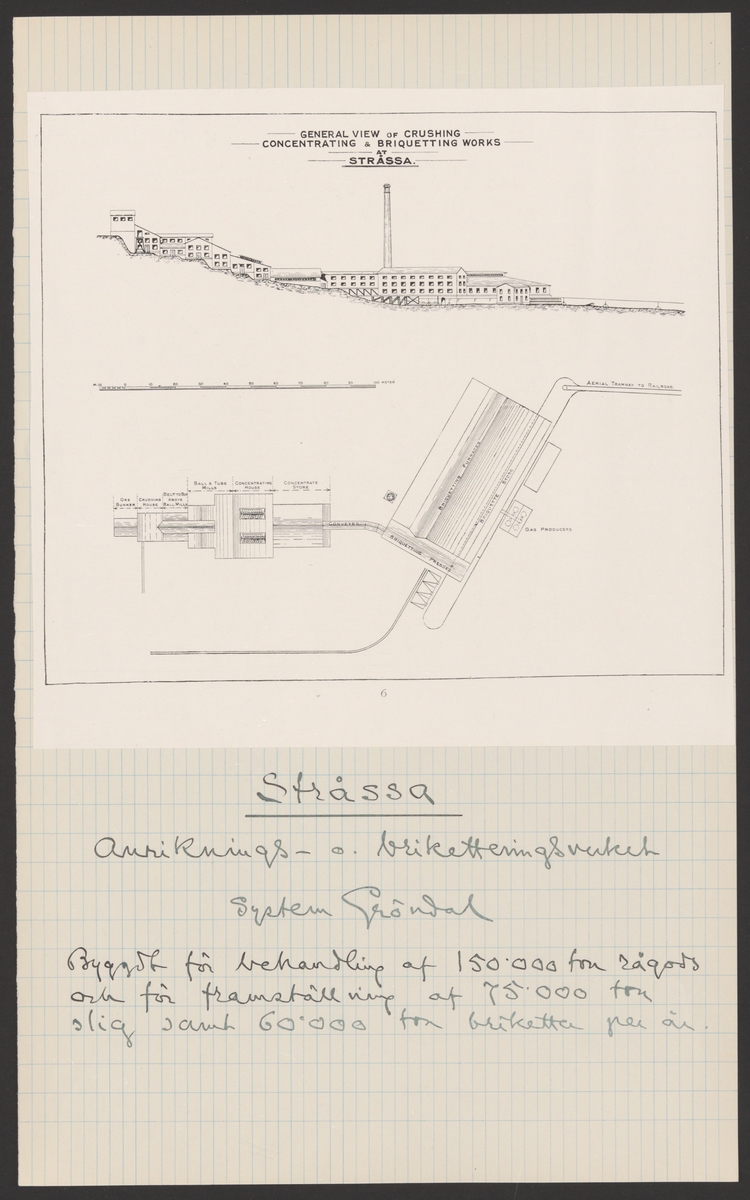 GENERAL VIEW OF CRUSHING
CONCENTRATING & BRIQUETTING WORKS
AT
STRÅSSA.
M. 10 0 10 20 30 40 50 60 70 80 90 100 METER
AERIAL TRAMWAY TO RAILROAD
BRIQUETTING FURNACES
BRIQUETTE STORE
GAS PRODUCERS
BRIQUETTING PRESSES
CONVEYER
ORE BUNKER
CRUSHING HOUSE
ABOVE BALL MILLS
BALL & TUBE MILLS
CONCENTRATING HOUSE
CONCENTRATE STORE
6
Stråssa
Anriknings- o. briketteringsverket
System Gröndal
Byggdt för behandling af 150.000 ton rågods
och för framställning af 75.000 ton
slig samt 60.000 ton briketter per år.